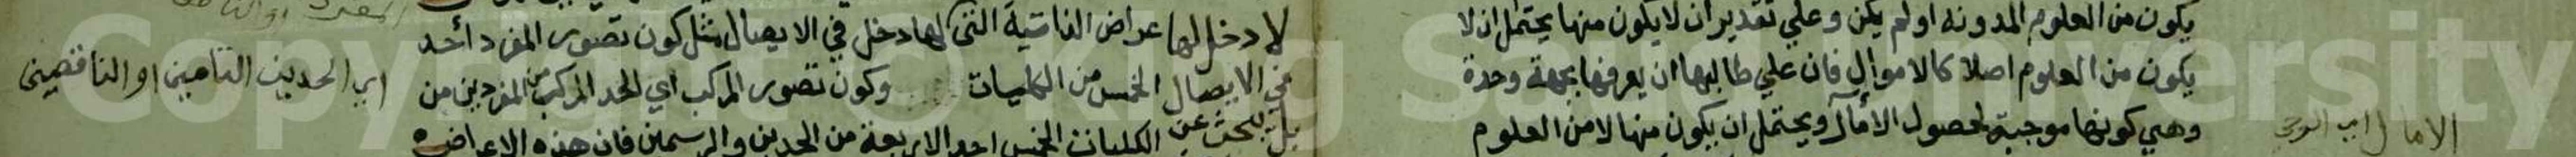 يكون من العلوم المدونه او لم يكن وعلي تقدير ان لا يكون منها يحتمل ان لا
يكون من العلوم اصلا كالاموال فان علي طالبها ان يعرفها بجهة وحدة
وهي كونها موجبة لحصول الأمال ويحتمل ان يكون منها لا من العلوم
الامال اي
لا دخل لها عراض الذاتية التي لها دخل في الايصال مثل كون تصور المفرد أحد
في الايصال الخمس من الكليات وكون تصور المركب اي الحد المركب من المفردين من
بل يبحث عن الكليات الخمس احد الاربعة من الحدين والرسمين فان هذه الاعراض
اي الحدين التامين او الناقصين
Copyright
University